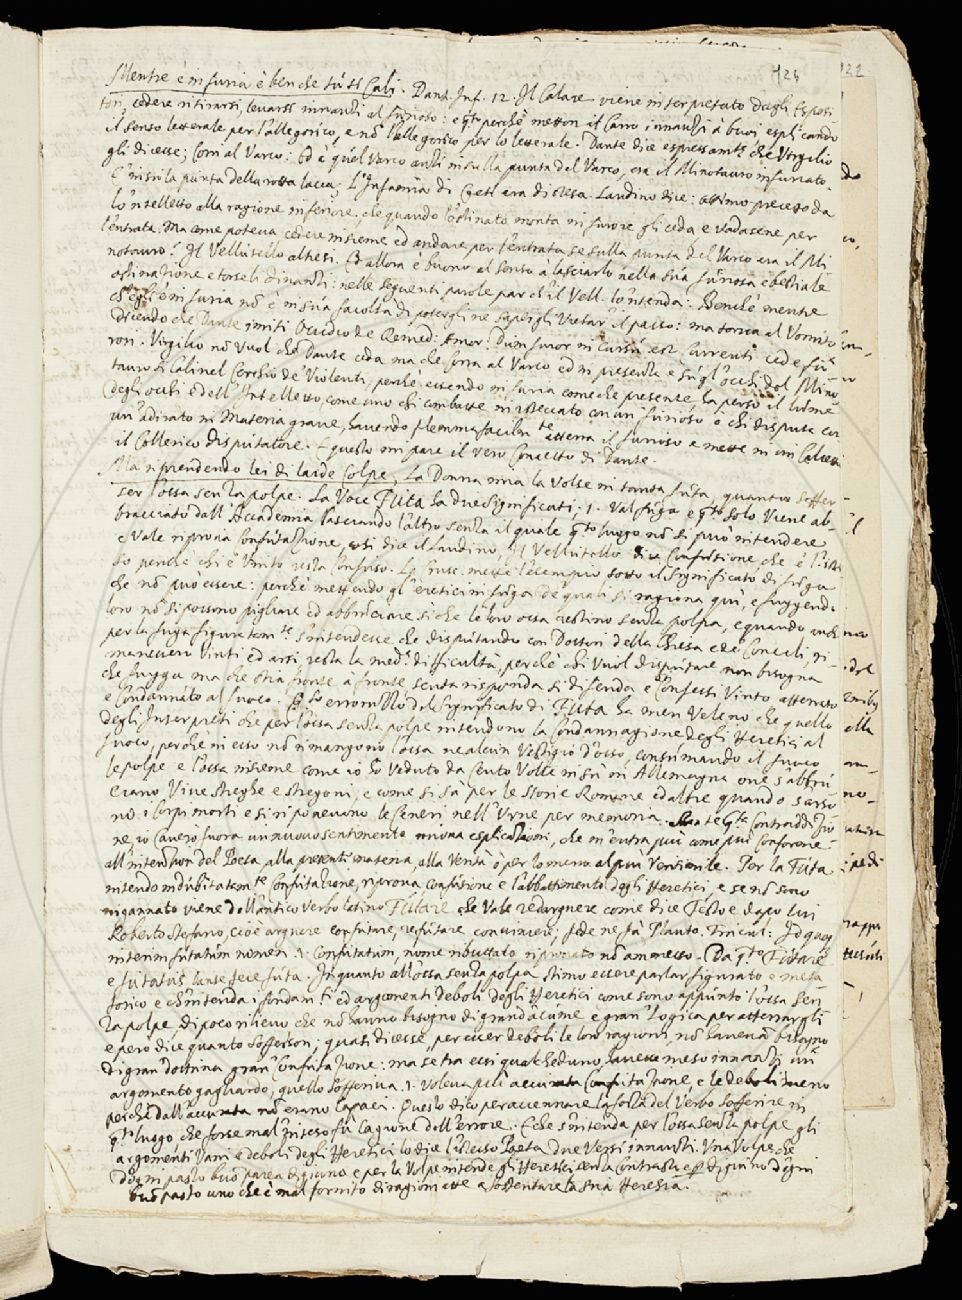 424
122
Mentre è in furia è ben che tu ti Cali. Dant. Inf. 12. Il Calare viene interpretato dagli Esposi
tori, cedere ritirarsi, levarsi innanti al furioso: e perchè metton il Carro innanzi à buoi esplicando
il senso letterale per l'allegorico, e nõ l'allegorico per lo letterale. Dante dice espressamte che Virgilio
gli dicesse; Corri al Varco: Ed è quel Varco anzi in sulla punta del Varco, era il Minotauro infuriato.
E'n su la punta della rotta lacca, L'Infamia di Creti era distesa. Landino dice: ottimo precetto da
lo'ntelletto alla ragione inferiore, che quando l'ostinato monta in furore gli ceda e vadasene per
l'entrata. Ma come poteva cedere insieme ed andare per l'entrata se sulla punta del Varco era il Mi
notauro? Il Vellutello altresì. Ed allora è buono al senso à lasciarlo nella sua furiosa e bestiale
ostinazione e torseli dinanzi: nelle seguenti parole par ch'il Vell. lo'ntenda: Benchè mentre
ch'egli è in furia nõ è in sua facoltà di potergli ne sapergli vietar' il passo: ma torna al Vomito
dicendo che Dante imiti Ovidio de Remed: Amor: Dum furor in cursu est currenti cede fu
rori. Virgilio nõ vuol che Dante ceda ma che corra al Varco ed in presenza e su gl'occhi del Mino
tauro si cali nel Cerchio de' Violenti, perchè essendo in furia come che presente ha perso il lume
degli occhi e dell'Intelletto, come uno chi combatte in isteccato con un furioso o chi disputa con
un'adirato in Materia grave, havendo flemma facilmte atterra il furioso e mette in un Calcetto
il Collerico disputatore. E questo mi pare il vero Concetto di Dante.
Ma riprendendo lei di laide Colpe, La Donna mia la volse in tanta futa, quanto soffer-
ser l'ossa senza polpe. La Voce Futa ha due significati. 1. Val fuga e qto solo viene ab-
bracciato dall'Accademia lasciando l'altro senza il quale qto luogo nõ si può intendere
e vale riprova Confutazione, così dice il Landino, Il Vellutello dice Confusione, che è l'istes
so perchè chi è vinto resta Confuso. La Crusc. mette l'esempio sotto il significato di fuga
che nõ può essere: perchè mettendo gl'eretici in fuga de' quali si ragiona qui, e fuggendo
loro nõ si possono pigliare ed abbruciare sì che le loro ossa restino senza polpa, e quando anch
per la fuga figuratamte s'intendesse che disputando con Dottori della Chiesa e de Concili, ri-
manessero vinti ed arsi resta la meda difficultà, perchè chi vuol disputare non bisogna
che fugga ma che stia fronte à fronte, senta risponda si difenda e Confessi Vinto atterrato
e Condannato al fuoco. Qto errore nel significato di Futa ha men veleno che quello
degli Interpreti che per l'ossa senza polpe intendono la Condannagione degli Heretici al
fuoco, perchè in esso nõ rimangono l'ossa ne alcun Vestigio d'osso, consumando il fuoco
le polpe e l'ossa insieme come io ho veduto da Cento Volte in su in Allemagna ove s'abbru
ciano Vive streghe e stregoni, e come si sa per le storie Romane ed altre quando s'arse
no i Corpi morti e si riponevano le ceneri nell'Urne per memoria. Contraddizio
ne, io Cavero fuora un nuovo sentimento nuova esplicazioni, che m'entra più come più conforme
all'intention del Poeta, alla presenti materia, alla Verità ò per lo meno al più Verisimile. Per la Futa
intendo indubitatamte Confutazione, riprova, confusione e l'abbattimento degli Heretici, e se nõ sono
ingannato viene dall'antico verbo latino Futare che vale redarguere come dice Festo e dapo lui
Roberto Stefano, cioè arguere confutare, refutare convincere; fede ne fa Plauto. Trucul: Id quoq
interim futatum nomen .1. Confutatum, nome ributtato riprovato nõ ammesso. Da qto Futare
e futatus hanse fece futa. In quanto all'ossa senza polpa stimo essere parlar figurato e meta
forico e ch'intenda i fondamti ed argomenti deboli degli Heretici come sono appunto l'ossa sen
za polpe, di poco rilievo che nõ hanno bisogno di grand'acume e gran Logica per atterrargli
e però dice quanto sofferson; quasi dicesse, per esser deboli le lor ragioni, nõ havevã bisogno
di gran Dottrina gran Confutazione: ma se tra essi qualcheduno havesse messo innanzi un
argomento gagliardo, quello sofferiva .1. voleva più accurata Confutazione, e le deboli meno
perchè dall'accurata nõ erano capaci. Questo dico per accennare la forza del Verbo Sofferire in
qto luogo che forse mal'inteso fu cagione dell'errore. E che s'intenda per l'ossa senza polpe gli
argomenti vani e deboli degli Heretici lo dice l'istesso Poeta due Versi innanzi. Una Volpe che
d'ogni pasto buõ parea digiuna e per la Volpe intende gli Heretici senza contrasto esser digiuno d'ogni
buõ pasto uno che è mal fornito di ragioni atte a sostentare la sua Heresia.